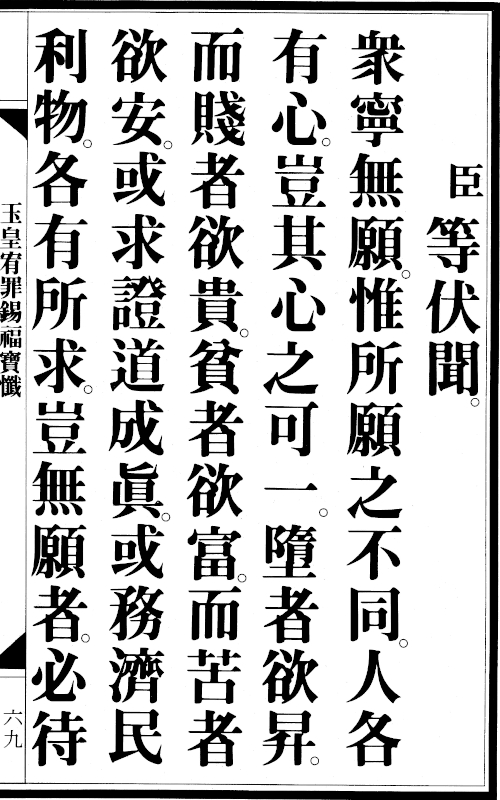 臣等伏聞。
衆寧無願。惟所願之不同。人各
有心。豈其心之可一。墮者欲昇。
而賤者欲貴。貧者欲富。而苦者
欲安。或求證道成眞。或務濟民
利物。各有所求。豈無願者。必待
玉皇宥罪錫福寶懺
六九